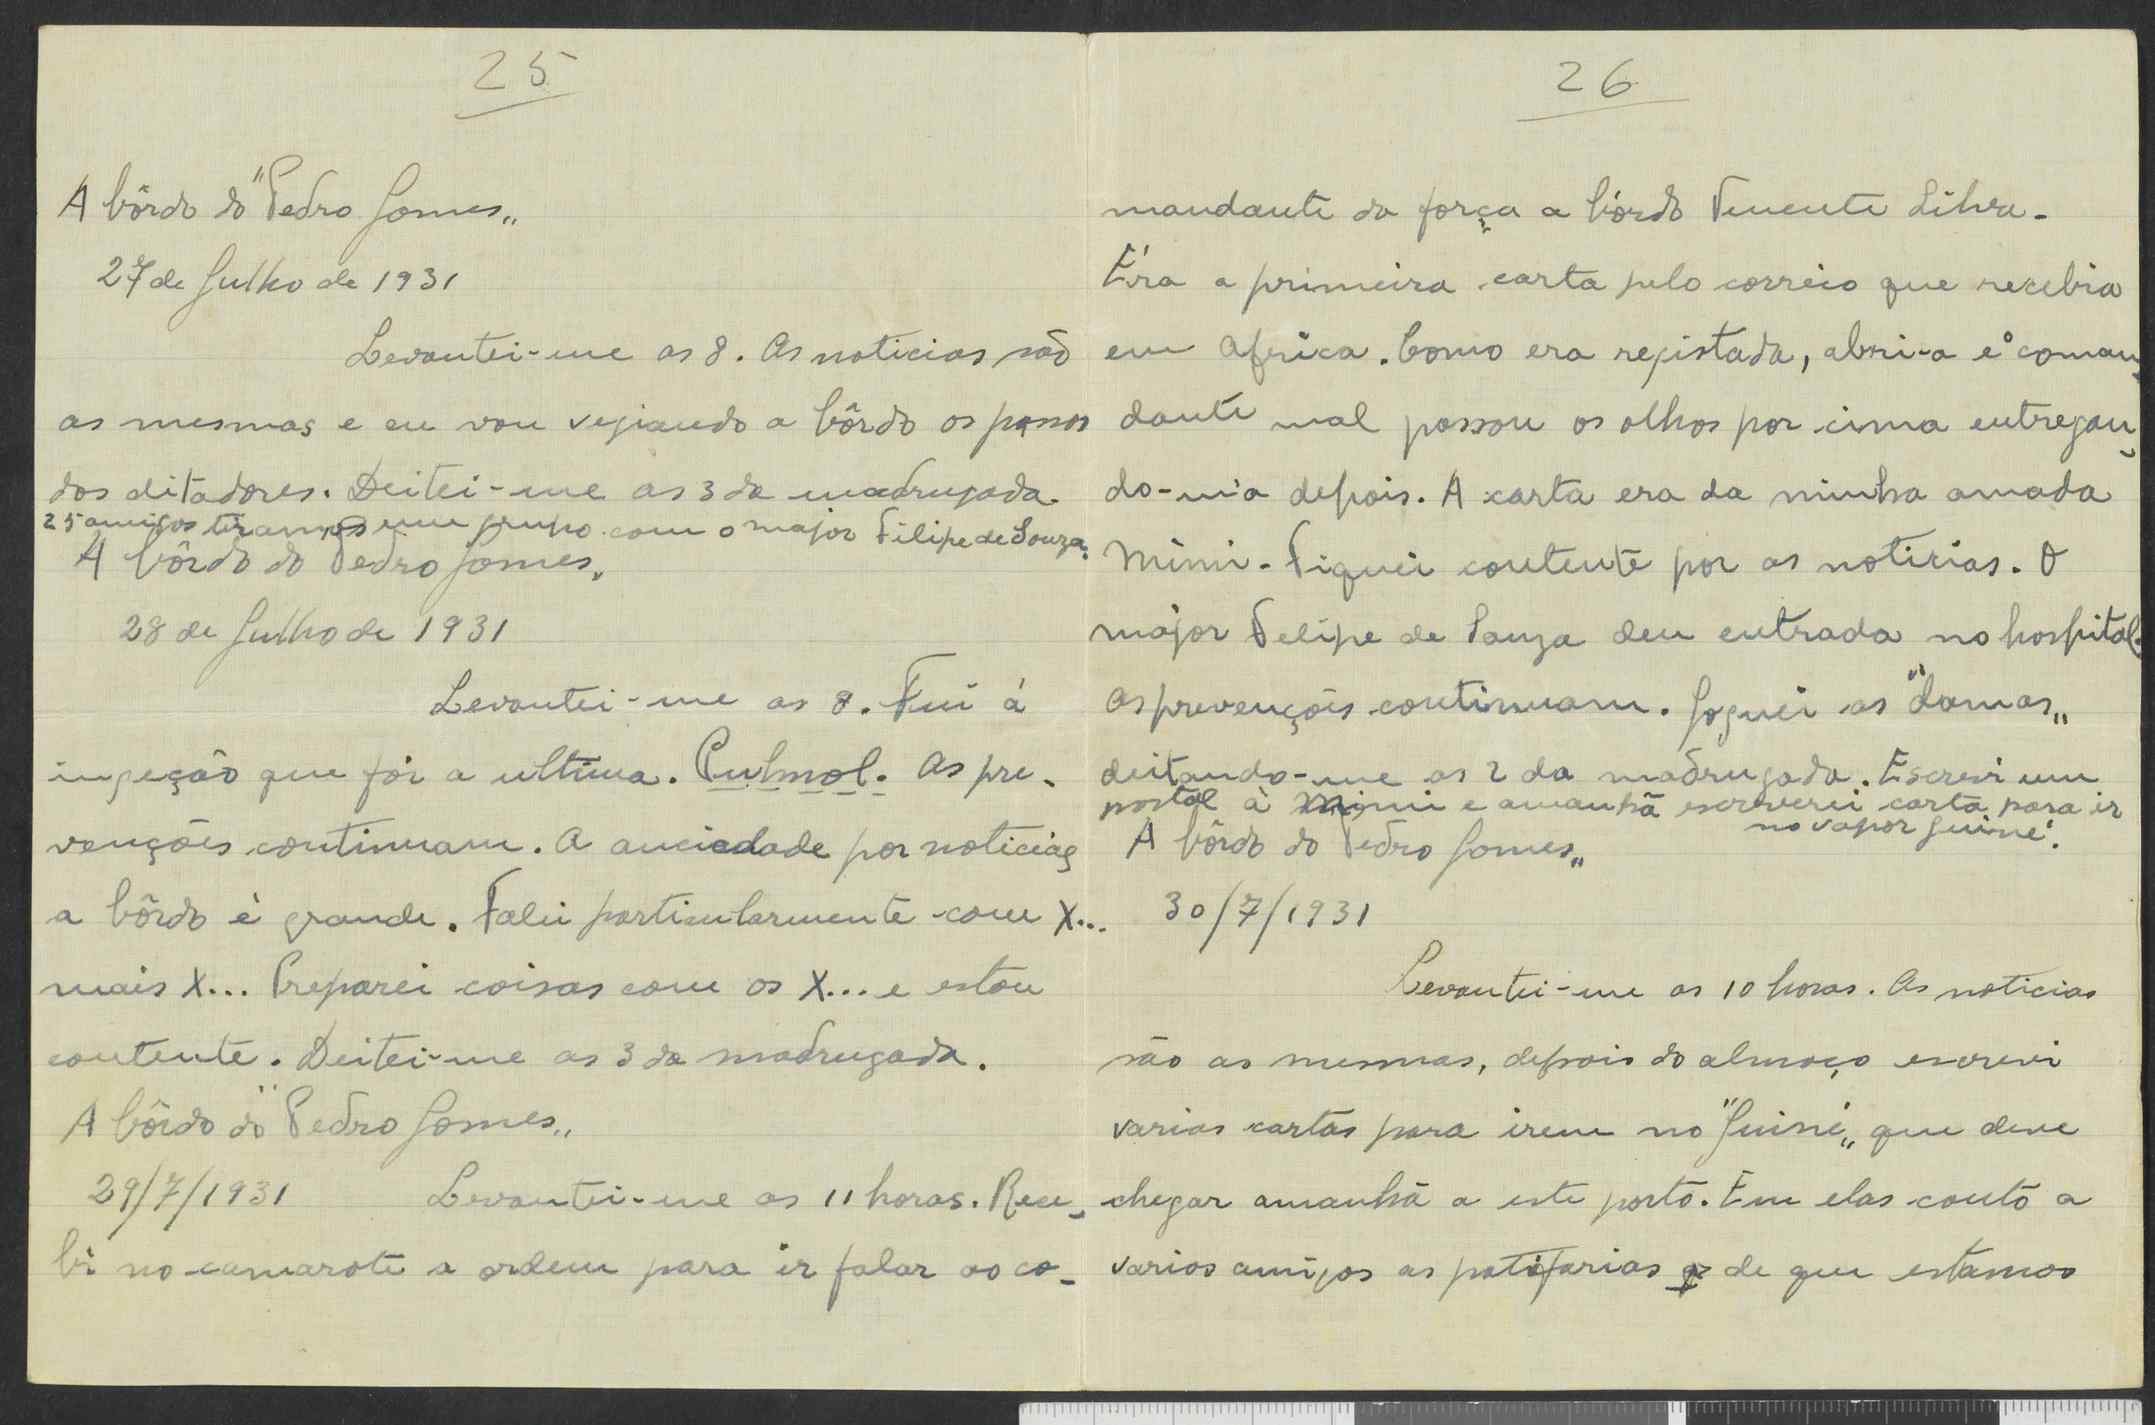 25
A bôrdo do "Pedro Gomes„
27 de Julho de 1931
Levantei-me as 8. As noticias são
as mesmas e eu vou vegiando a bôrdo os passos
dos ditadores. Deitei-me as 3 da madrugada.
25 amigos tiramos um grupo com o major Filipe de Souza.
A bôrdo do Pedro Gomes„
28 de Julho de 1931
Levantei-me as 8. Fui á
ingeção que foi a ultima. Pulmol. As pre-
venções continuam. A anciedade por noticias
a bôrdo é grande. Falei particularmente com X...
mais X... Preparei coisas com os X... e estou
contente. Deitei-me as 3 da madrugada.
A bôrdo do "Pedro Gomes„
29/7/1931 Levantei-me as 11 horas. Rece-
bi no camarote a ordem para ir falar ao co-
26
mandante da força a bórdo Tenente Silva.
Éra a primeira carta pelo correio que recebia
em Africa. Como era registada, abri-a e o coman-
dante mal passou os olhos por cima entregan-
do-m'a depois. A carta era da minha amada
Mimi. Fiquei contente por as noticias. O
major Felipe de Souza deu entrada no hospital.
As prevenções continuam. Joguei as "damas„
deitando-me as 2 da madrugada. Escrevi um
postal à Mimi e amanhã escreverei carta para ir
no vapor Guiné.
A bôrdo do Pedro Gomes„
30/7/1931
Levantei-me as 10 horas. As noticias
são as mesmas, depois do almoço escrevi
varias cartas para irem no "Guiné„ que deve
chegar amanhã a este porto. Em elas conto a
varios amigos as patifarias de que estamos